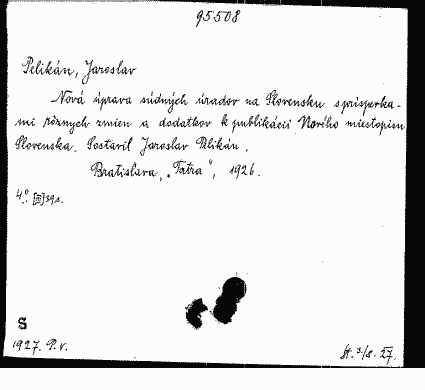 95508
Pelikán, Jaroslav
Nová úprava súdných úradov na Slovensku s príspevka-
mi rôznych zmien a dodatkov k publikácii Nového miestopisu
Slovenska. Sostavil Jaroslav Pelikán.
Bratislava, „Tatra", 1926.
4.° [III] 39 s.
S
1927. P. v.
St. 3/8. 27.